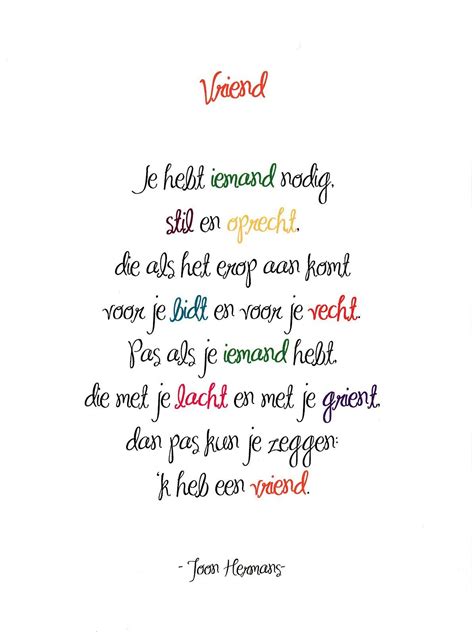 Vriend
Je hebt iemand nodig,
stil en oprecht,
die als het erop aan komt
voor je bidt en voor je vecht.
Pas als je iemand hebt,
die met je lacht en met je grient,
dan pas kun je zeggen:
'k heb een vriend.
- Toon Hermans-